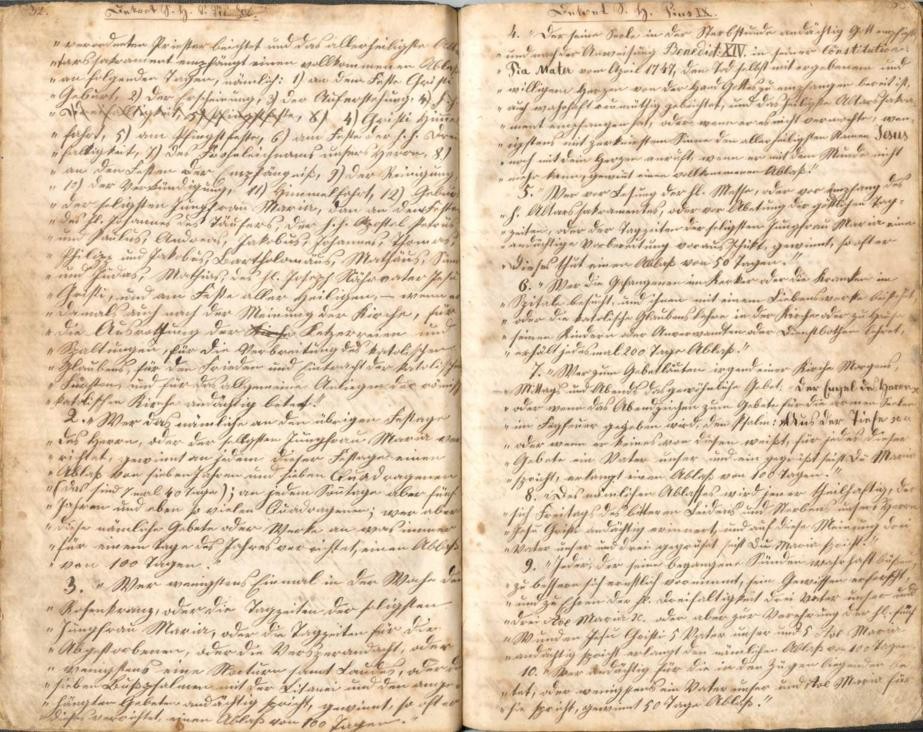 32. Decret S. H. Pii IX.
„verordneten Priester beichtet und das allerheiligste Al-
„tarssakrament empfängt einen vollkommenen Ablaß
„an folgenden Tagen, nämlich: 1) an dem Feste Christi
„Geburt, 2) der Erscheinung, 3) der Auferstehung, 4)
4) Christi Himmel-
„fahrt, 5) am Pfingstfeste, 6) am Feste der h. h. Drei-
„faltigkeit, 7) des Frohnleichnams unsers Herrn, 8)
„an den Festen der Empfängniß, 9) der Reinigung
„10) der Verkündigung, 11) Himmelfahrt, 12) Geburt
„der seligsten Jungfrau Maria, dan an dem Feste
„des hl. Johannes des Täufers, der h. h. Apostel Petrus
„und Paulus, Andreas, Jakobus, Johannes, Thomas,
„Philipp und Jakobus, Bartholomäus, Mathäus, Simon
„und Judas, Mathias, des hl. Joseph Nährvater Jesu
„Christi, und am Feste aller Heiligen, – wenn er
„damals auch nach der Meinung der Kirche, für
„die Ausrottung der Ketzereien und
„Spaltungen, für die Verbreitung des katolischen
„Glaubens, für den Frieden und Eintracht der katolischen
„Fürsten, und für das allgemeine Anliegen der römisch
„katolischen Kirche andächtig betet.
2. „Wer das nämliche an den übrigen Festtagen
„des Herrn, oder der seligsten Jungfrau Maria ver-
„richtet, gewinnt an jedem dieser Festtage einen
„Ablaß von sieben Jahren und sieben Quadragenen
„(das sind 7 mal 40 Tage); an jedem Sontage aber fünf
„Jahren und eben so vielen Quadragenen; wer aber
„diese nämliche Gebete oder Werke an was immer
„für einem tage des Jahres verrichtet, einen Ablaß
„von 100 Tagen.“
3. „Wer wenigstens Einmal in der Woche den
„Rosenkranz, oder die Tagzeiten der seligsten
„Jungfrau Maria, oder die Tagzeiten für die
„Abgestorbenen, oder die Vesper andacht, oder
„wenigstens eine Nocturn samt Laudes, oder die
„sieben Bußpsalmen mit der Litanei und den ange-
„hängten Gebeten andächtig spricht, gewinnt, so oft er
„dieses verrichtet, einen Ablaß von 100 Tagen.“
Decret S. H. Pius IX.
4. „Der seine Seele in der Sterbstunde andächtig Gott empfiehlt
„und nach der Anweisung Benedict XIV. in seiner Constitution:
„Pia Mater vom April 1747, den Tod selbst mit ergebenem und
„willigem Herzen von der Hand Gottes zu empfangen bereit ist,
„auch wahrhaft reumüthig gebeichtet, und das heiligste Altarssakra-
„ment empfangen hat, oder wenn er es nicht vermochte, wen-
„igstens mit zerknirschtem Sinne den allerheiligsten Namen Jesus
„noch mit dem Herzen anruft, wenn er mit dem Munde nicht
„mehr kann, gewinnt einen vollkommenen Ablaß.“
5. „Wer vor Lesung der hl. Messe, oder vor Empfang des
„h. Altarssakramentes, oder vor Abetung der göttlichen Tag-
„zeiten, oder der Tagzeiten der seligsten Jungfrau Maria eine
„andächtige Vorbereitung voraus schickt, gewinnt, so ofter
„dieses thut einen Ablaß von 50 Tagen.“
6. „Wer die Gefangenen im Kerker oder die Kranken im
„Spitale besucht, und ihnen mit einem Liebenswerke beisteht
„oder die katolische Glaubenslehre in der Kirche oder zu Hause
„seinen Kindern oder Anverwandten oder Dienstbothen lehret,
„erhält jedesmal 200 Tage Ablaß.“
7. „Wer zum Gebetläuten irgend einer Kirche Morgens,
„Mittags und Abends das gewöhnliche Gebet. Der Engel des Herrn,
„oder wenn das Abendzeichen zum Gebete für die armen Seelen
„im Fegfeuer gegeben wird, den Psalm: Aus der Tiefe
„oder wenn er keines von diesen weißt, für jedes dieser
„Gebete ein Vater unser und ein gegrüßt seist Du Maria
„spricht, erlangt einen Ablaß von 100 Tagen.“
8. „Des nämlichen Ablasses wird jener theilhaftig, der
„sich Freitags des bitteren Leidens und Sterbens unsers Herrn
„Jesu Christi andächtig erinnert, und auf diese Meinung drei
„Vater unser und drei gegrüßt seist Du Maria spricht.“
9. „Jeder, der seine begangene Sünden wahrhaft büßen
„zu bessern sich ernstlich vornimmt, sein Gewissen erforscht,
„und zu Ehren der hl. Dreifaltigkeit drei Vater unser und
„drei Ave Maria rc. oder aber zur Verehrung der hl. fünf
„Wunden Jesu Christi 5 Vater unser und 5 Ave Maria
„andächtig spricht erlangt den nämlichen Ablaß von 100 Tagen
10. „Wer andächtig für die in den Zügen liegenden be-
„tet, oder wenigstens ein Vater unser und Ave Maria für
„sie spricht, gewinnt 50 Tage Ablaß.“